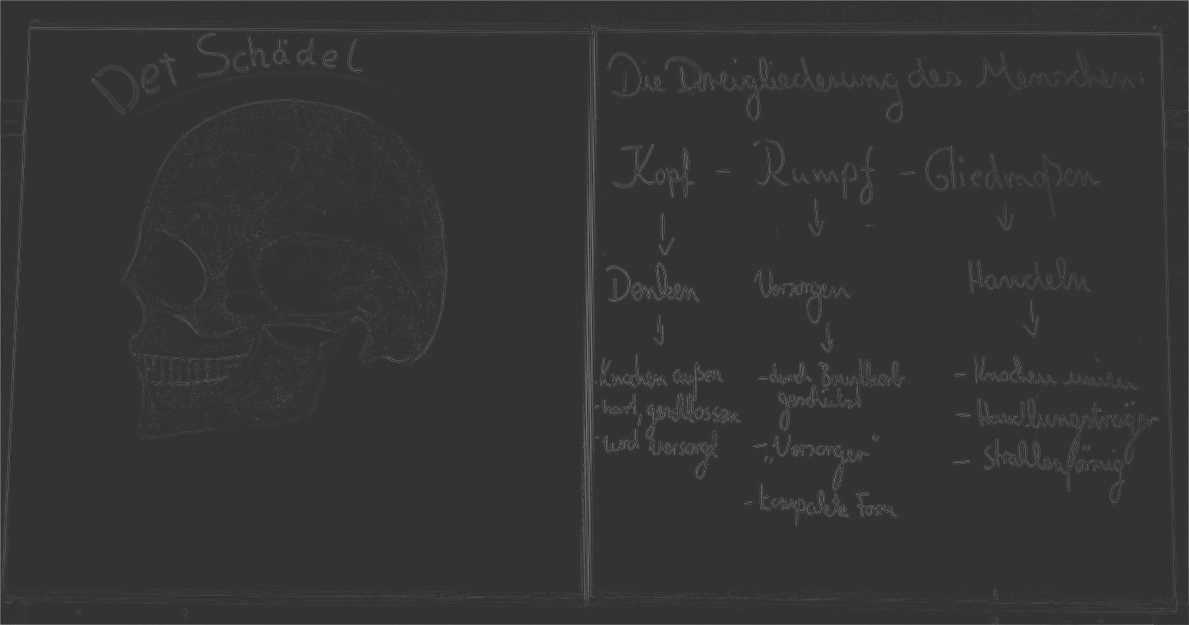 Der Schädel
Die Dreigliederung des Menschen:
Kopf - Rumpf - Gliedmaßen
Denken Versorgen Handeln
- Knochen außen
- hart, geschlossen
- wird versorgt
- durch Brustkorb
geschützt
- "Versorger"
- kompakte Form
- Knochen innen
- Handlungsträger
- Strahlenförmig